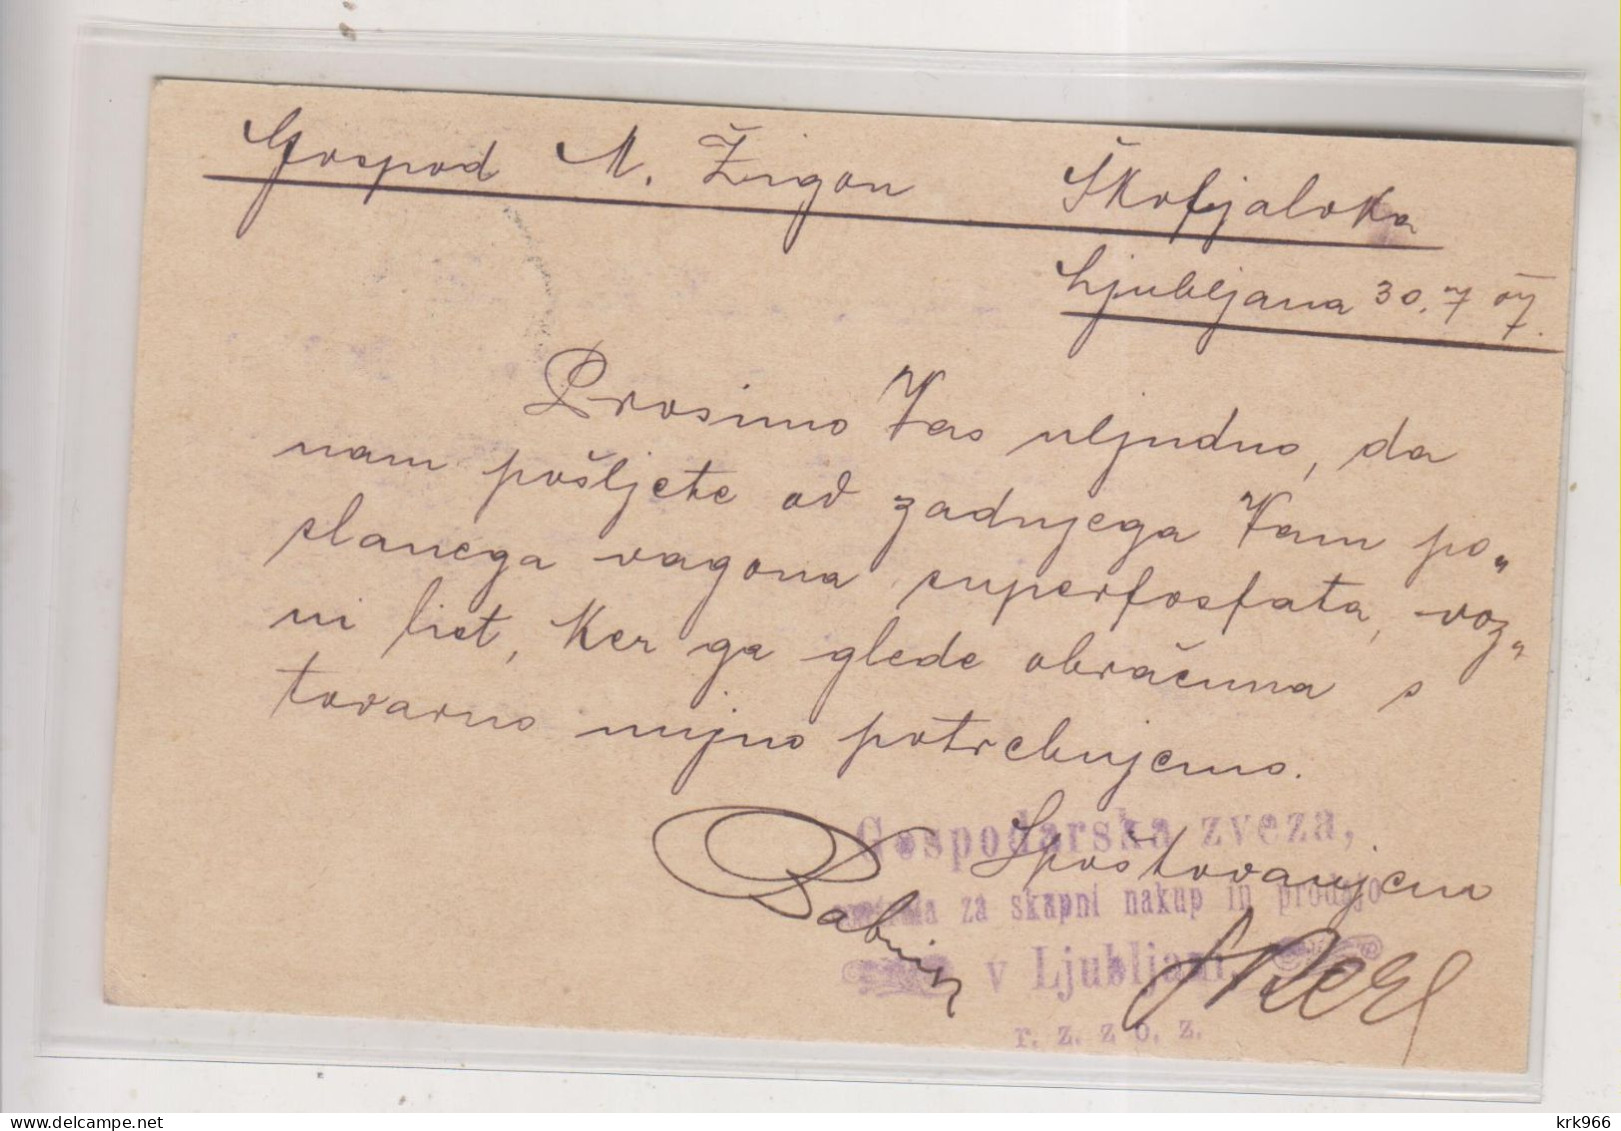 Gospod M. Žigon Škofjaloka
Ljubljana 30. 7 07.
Prosimo Vas uljudno, da
nam pošljete od zadnjega Vam po„
slanega vagona superfosfata, voz„
ni list, Ker ga glede obračuna s
tovarno nujno potrebujemo.
Spoštovanjem
Gospodarska zveza,
za skupni nakup in prodajo
v Ljubljani,
r. z. z o. z.
krk966